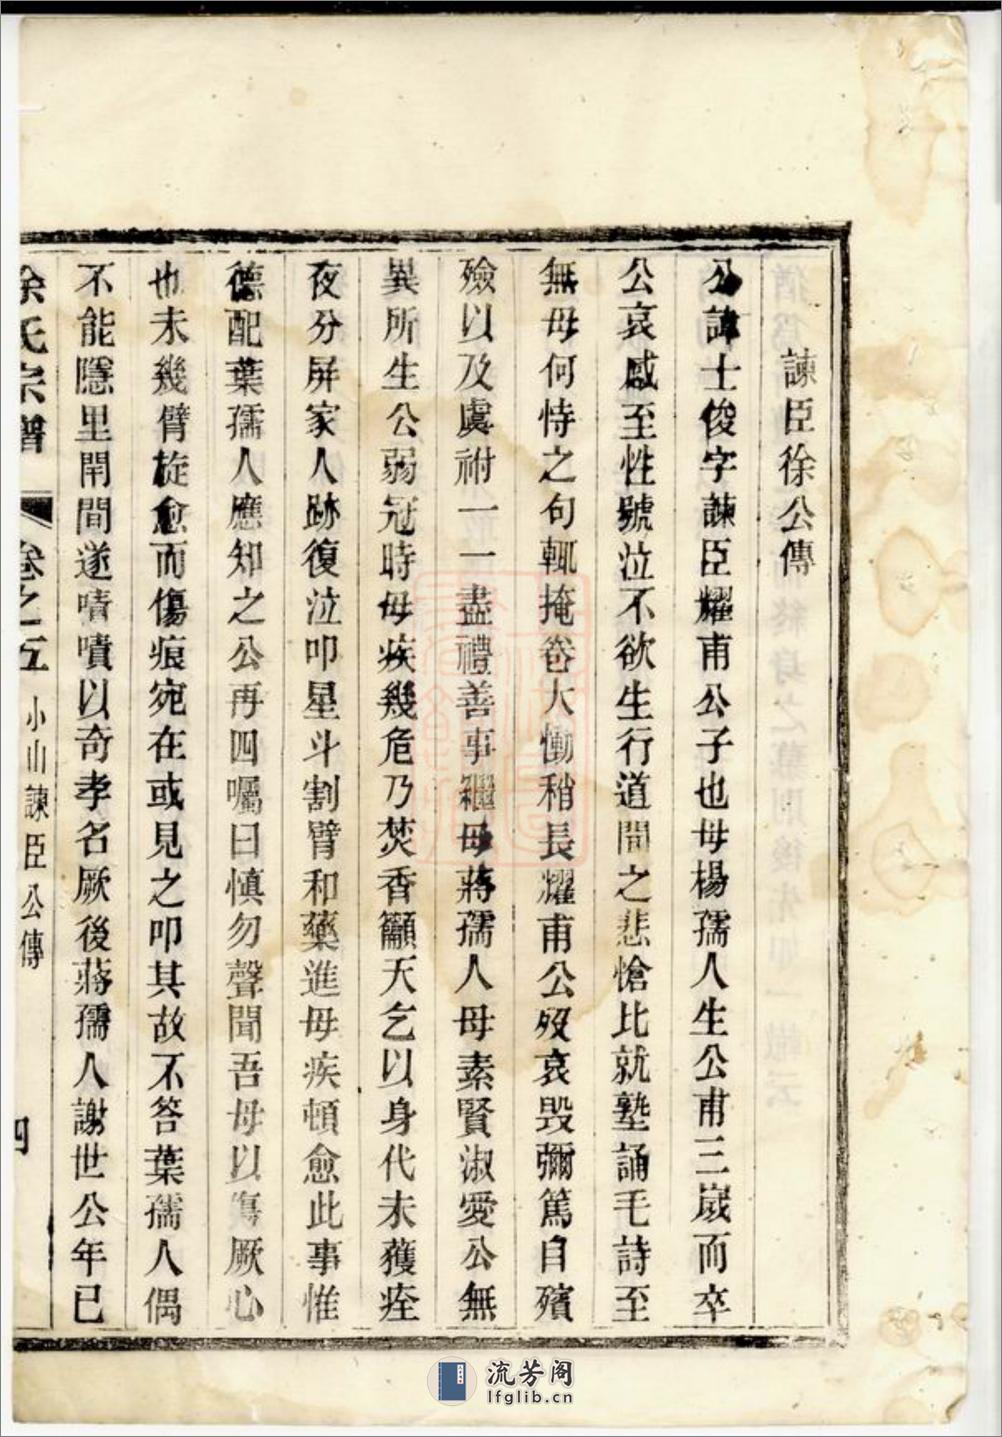 諫臣徐公傳
公諱士俊字諫臣耀甫公子也母楊孺人生公甫三嵗而卒
公哀慼至性號泣不欲生行道間之悲愴比就塾誦毛詩至
無母何恃之句輒掩卷大慟稍長耀甫公歿哀毀彌篤自殯
殮以及虞祔一一盡禮善事繼母蔣孺人母素賢淑愛公無
異所生公弱冠時母疾幾危乃焚香籲天乞以身代未獲痊
夜分屏家人跡復泣叩星斗割臂和藥進母疾頓愈此事惟
德配葉孺人應知之公再四囑曰愼勿聲聞吾母以傷厥心
也未幾臂旋愈而傷痕宛在或見之叩其故不答葉孺人偶
不能隱里閈間遂嘖嘖以奇孝名厥後蔣孺人謝世公年已
徐氏宗譜 卷之五 小山諫臣公傳 四
流芳阁
lfglib.cn